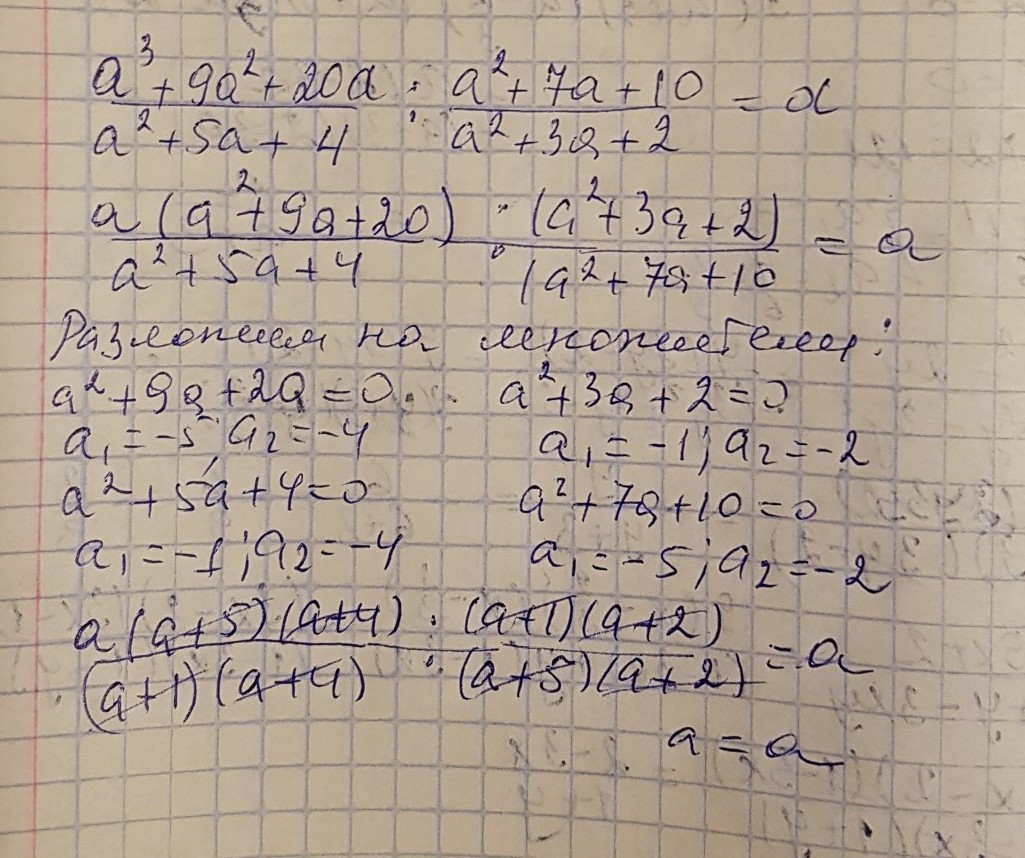 a³+9a²+20a / a²+5a+4 : a²+7a+10 / a²+3a+2 = a
a(a²+9a+20) / a²+5a+4 : (a²+3a+2) / (a²+7a+10 = a
Разложим на множители:
a²+9a+20=0 a²+3a+2=0
a₁=-5; a₂=-4 a₁=-1; a₂=-2
a²+5a+4=0 a²+7a+10=0
a₁=-1; a₂=-4 a₁=-5; a₂=-2
a(a+5)(a+4) / (a+1)(a+4) : (a+1)(a+2) / (a+5)(a+2) = a
a=a